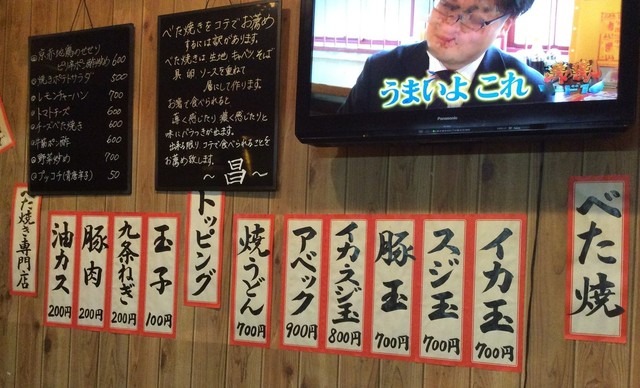 京赤地鶏のせせり
ピリ辛ポン酢炒め 600
焼きポテトサラダ 500
レモンチャーハン 700
トマトチーズ 600
チーズべた焼き 600
牛筋ポン酢 600
野菜炒め 700
プッコチ(青唐辛子) 50
べた焼きをコテでお薦め
するには訳があります。
べた焼きは生地 キャベツ そば
具 卵 ソースを重ねて
層にして作ります。
お箸で食べられると
薄く感じたり濃く感じたりと
味にバラつきが出ます。
出来る限りコテで食べられることを
お薦め致します。
～昌～
うまいよ これ
Panasonic
べた焼
イカ玉
700円
スジ玉
700円
豚玉
700円
イカスジ玉
800円
アベック
900円
焼うどん
700円
トッピング
玉子
100円
九条ねぎ
200円
豚肉
200円
油カス
200円
べた焼き専門店